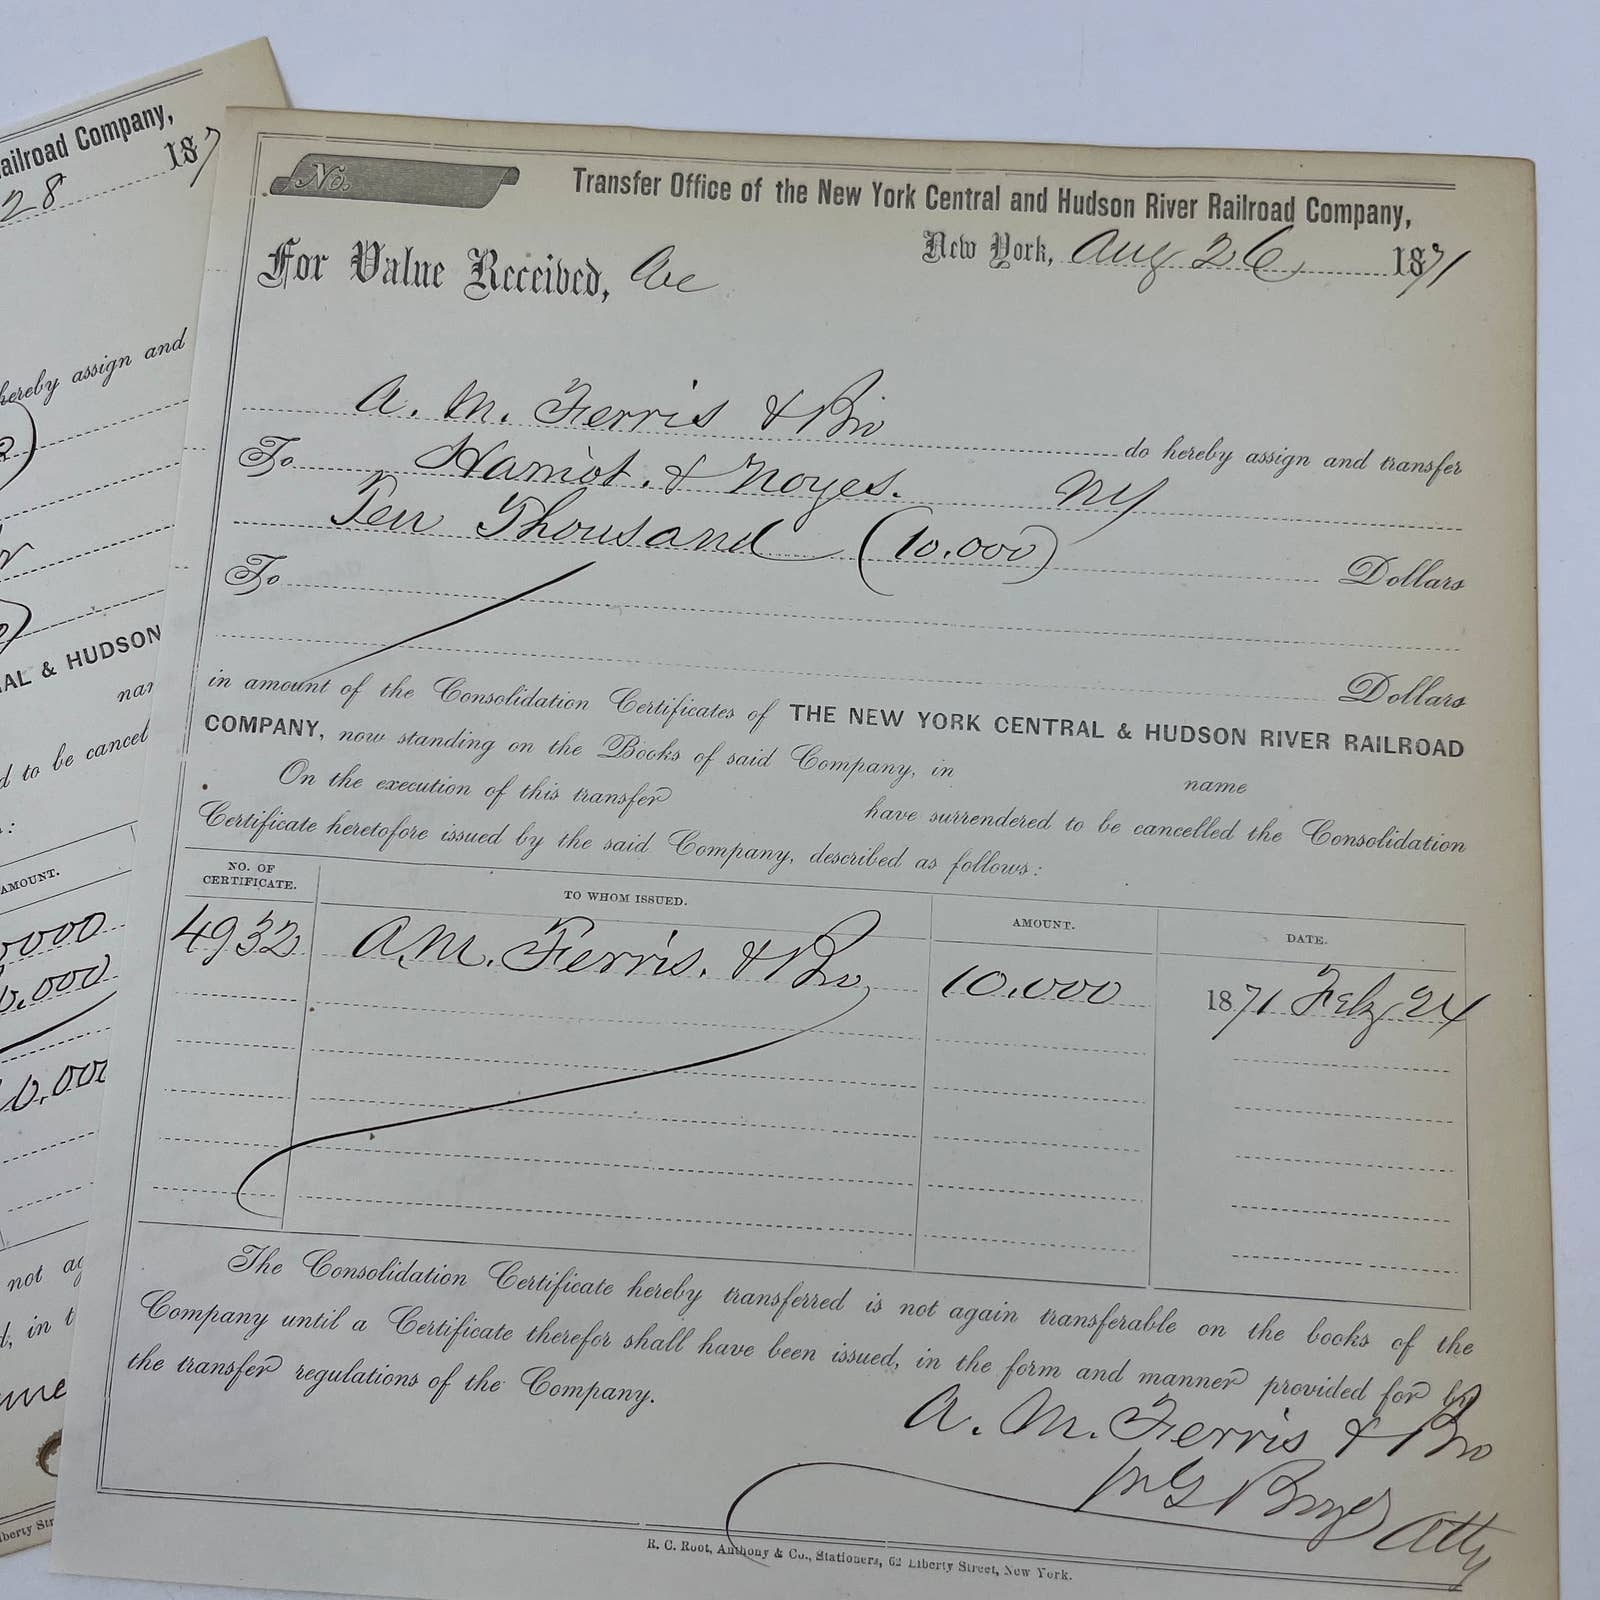 ailroad Company,
28 187
hereby assign and
AL & HUDSON
nam
d to be cancel
AMOUNT.
0000
0,000
0,000
not ag
d, in t
iberty Str
No.
Transfer Office of the New York Central and Hudson River Railroad Company,
New York, Aug 26, 1871
For Value Received, We
A. M. Ferris & Bro do hereby assign and transfer
To Hamiot. & Noyes. NY
Ten Thousand (10.000) Dollars
To
Dollars
in amount of the Consolidation Certificates of THE NEW YORK CENTRAL & HUDSON RIVER RAILROAD
COMPANY, now standing on the Books of said Company, in name
On the execution of this transfer have surrendered to be cancelled the Consolidation
Certificate heretofore issued by the said Company, described as follows:
NO. OF CERTIFICATE. TO WHOM ISSUED. AMOUNT. DATE.
4932 A.M. Ferris. & Bro, 10.000 1871 Feby 24
The Consolidation Certificate hereby transferred is not again transferable on the books of the
Company until a Certificate therefor shall have been issued, in the form and manner provided for by
the transfer regulations of the Company.
A. M. Ferris & Bro
Atty
R. C. Root, Anthony & Co., Stationers, 62 Liberty Street, New York.